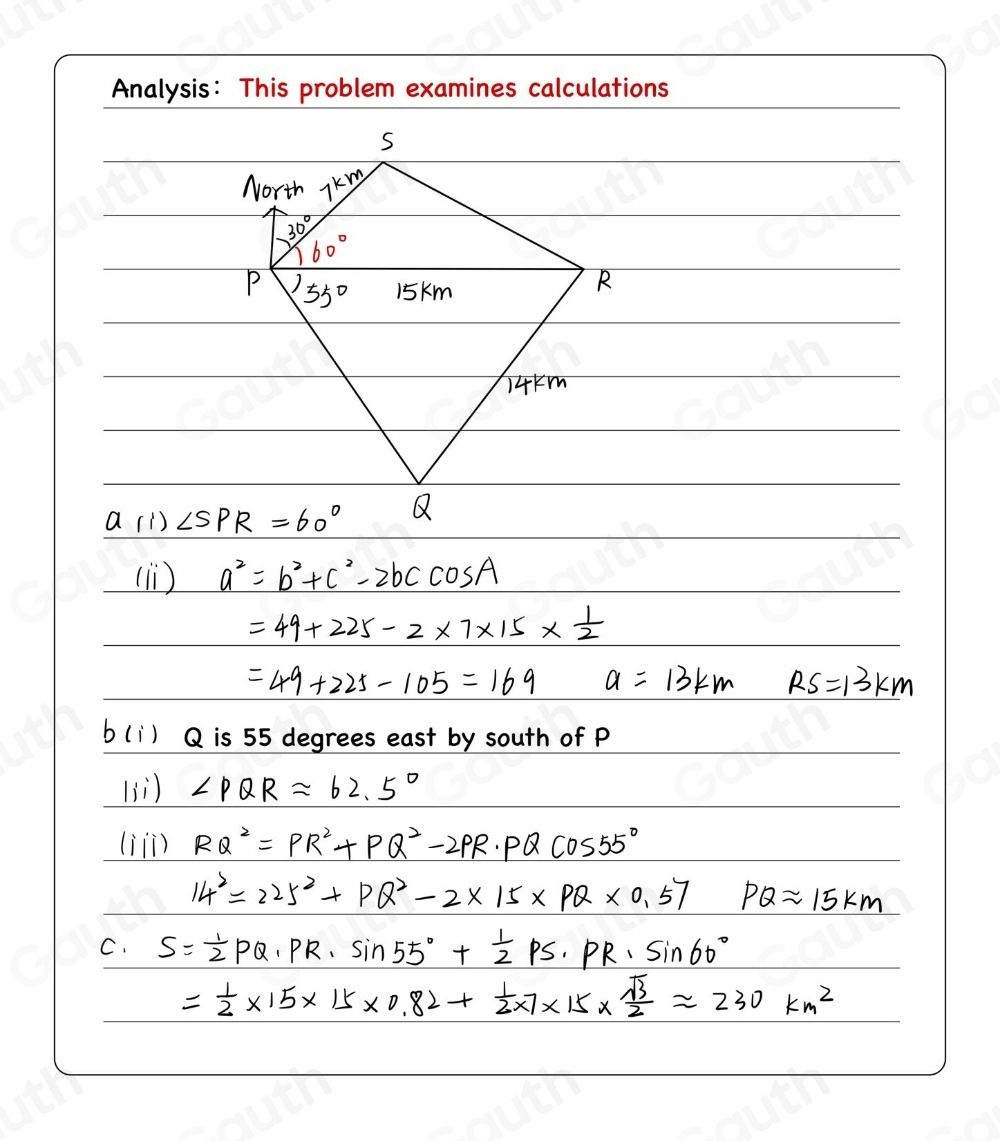 Analysis: This problem examines calculations
S
North 7km
30°
60°
P 55° 15km R
14km
Q
a (i) ∠SPR = 60°
(ii) a² = b² + c² - 2bc cosA
= 49 + 225 - 2 × 7 × 15 × 1/2
= 49 + 225 - 105 = 169 a = 13km RS = 13km
b (i) Q is 55 degrees east by south of P
(ii) ∠PQR ≈ 62.5°
(iii) RQ² = PR² + PQ² - 2PR·PQ cos55°
14² = 225² + PQ² - 2 × 15 × PQ × 0.57 PQ ≈ 15km
c. S = 1/2 PQ · PR · sin55° + 1/2 PS · PR · sin60°
= 1/2 × 15 × 15 × 0.82 + 1/2 × 7 × 15 × √3/2 ≈ 230 km²
Gauth